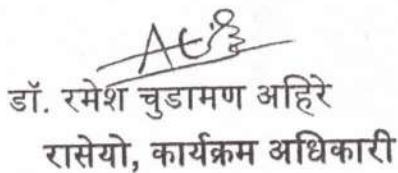 डॉ. रमेश चुडामण अहिरे
रासेयो, कार्यक्रम अधिकारी